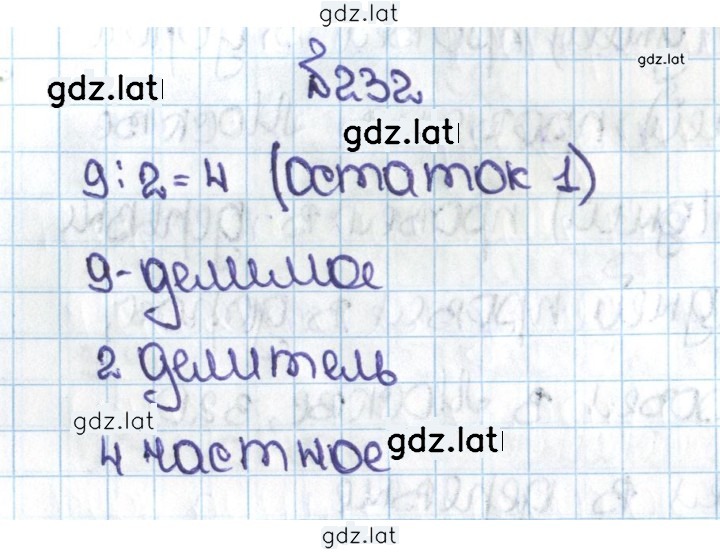 gdz.lat
gdz.lat
№232
gdz.lat
gdz.lat
9:2=4 (остаток 1)
9-делимое
2 делитель
gdz.lat
4 частное
gdz.lat
gdz.lat